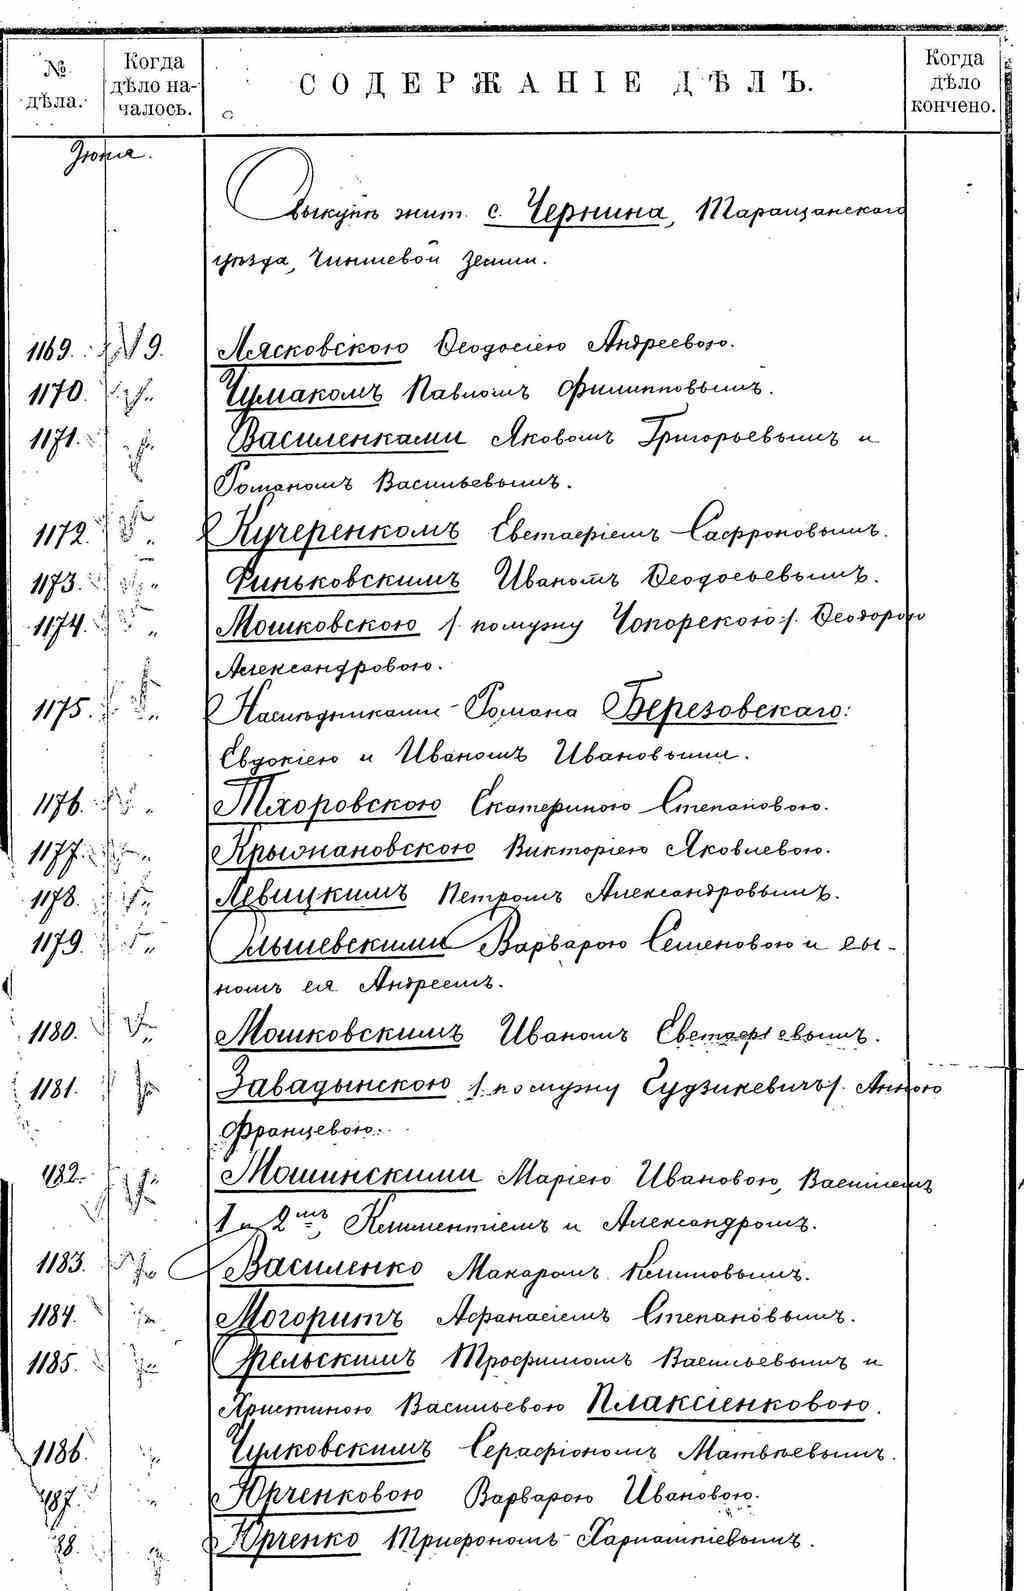 № дѣла.
Когда дѣло началось.
СОДЕРЖАНІЕ ДѢЛЪ.
Когда дѣло кончено.
Іюня.
О выкупѣ жит. с. Чернина, Таращанскаго
уѣзда, чиншевой земли.
1169. 9. Лясковскою Ѳеодосіею Андреевою.
1170. " Чумакомъ Павломъ Филипповымъ.
1171. " Василенками Яковомъ Григорьевымъ и
Романомъ Васильевымъ.
1172. " Кучеренкомъ Евстафіемъ Сафроновымъ.
1173. " Финьковскимъ Иваномъ Ѳеодосьевымъ.
1174. " Мошковскою /: по мужу Чопорскою :/ Ѳеодорою
Александровою.
1175. " Наслѣдниками Романа Березовскаго:
Евдокіею и Иваномъ Ивановыми.
1176. " Тхоровскою Екатериною Степановою.
1177. " Крыжановскою Викторіею Яковлевою.
1178. " Левицкимъ Петромъ Александровымъ.
1179. " Олышевскими Варварою Семеновою и сы-
номъ ея Андреемъ.
1180. " Мошковскимъ Иваномъ Евстафіевымъ.
1181. " Завадынскою /: по мужу Гудзикевичъ :/ Анною
Францевою.
1182. " Мошинскими Маріею Ивановою, Василіемъ
1 и 2мъ, Климентіемъ и Александромъ.
1183. " Василенко Макаромъ Климовымъ.
1184. " Могоритъ Афанасіемъ Степановымъ.
1185. " Орельскимъ Трофимомъ Васильевымъ и
Христиною Васильевою Плаксіенковою.
1186. " Чулковскимъ Серафіономъ Матвѣевымъ.
1187. " Юрченковою Варварою Ивановою.
88. " Юрченко Трифономъ Харлампіевымъ.